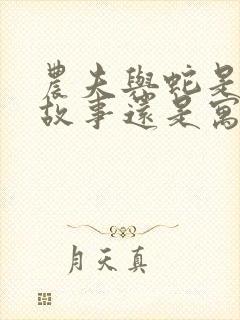 農夫與蛇是
故事還是寓
月天真